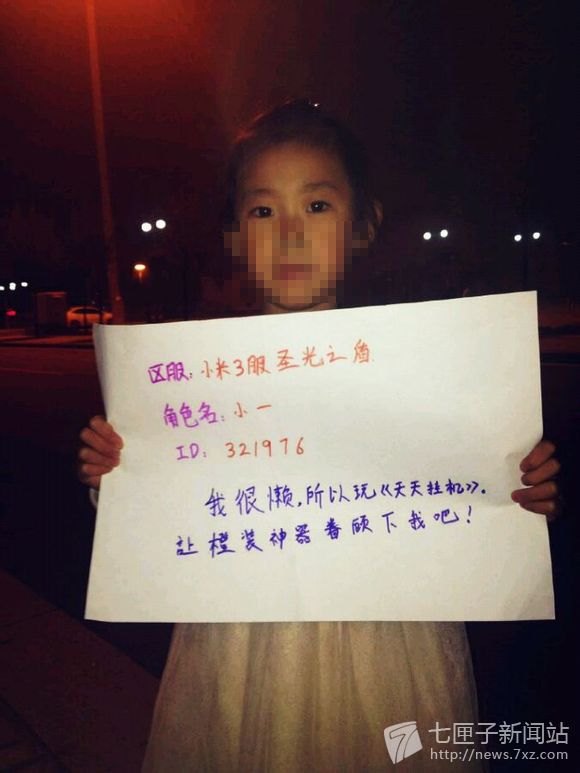 区服：小米3服圣光之盾
角色名：小一
ID：321976
我很懒，所以玩《天天挂机》。
让橙装神器眷顾下我吧！
七匣子新闻站
http://news.7xz.com